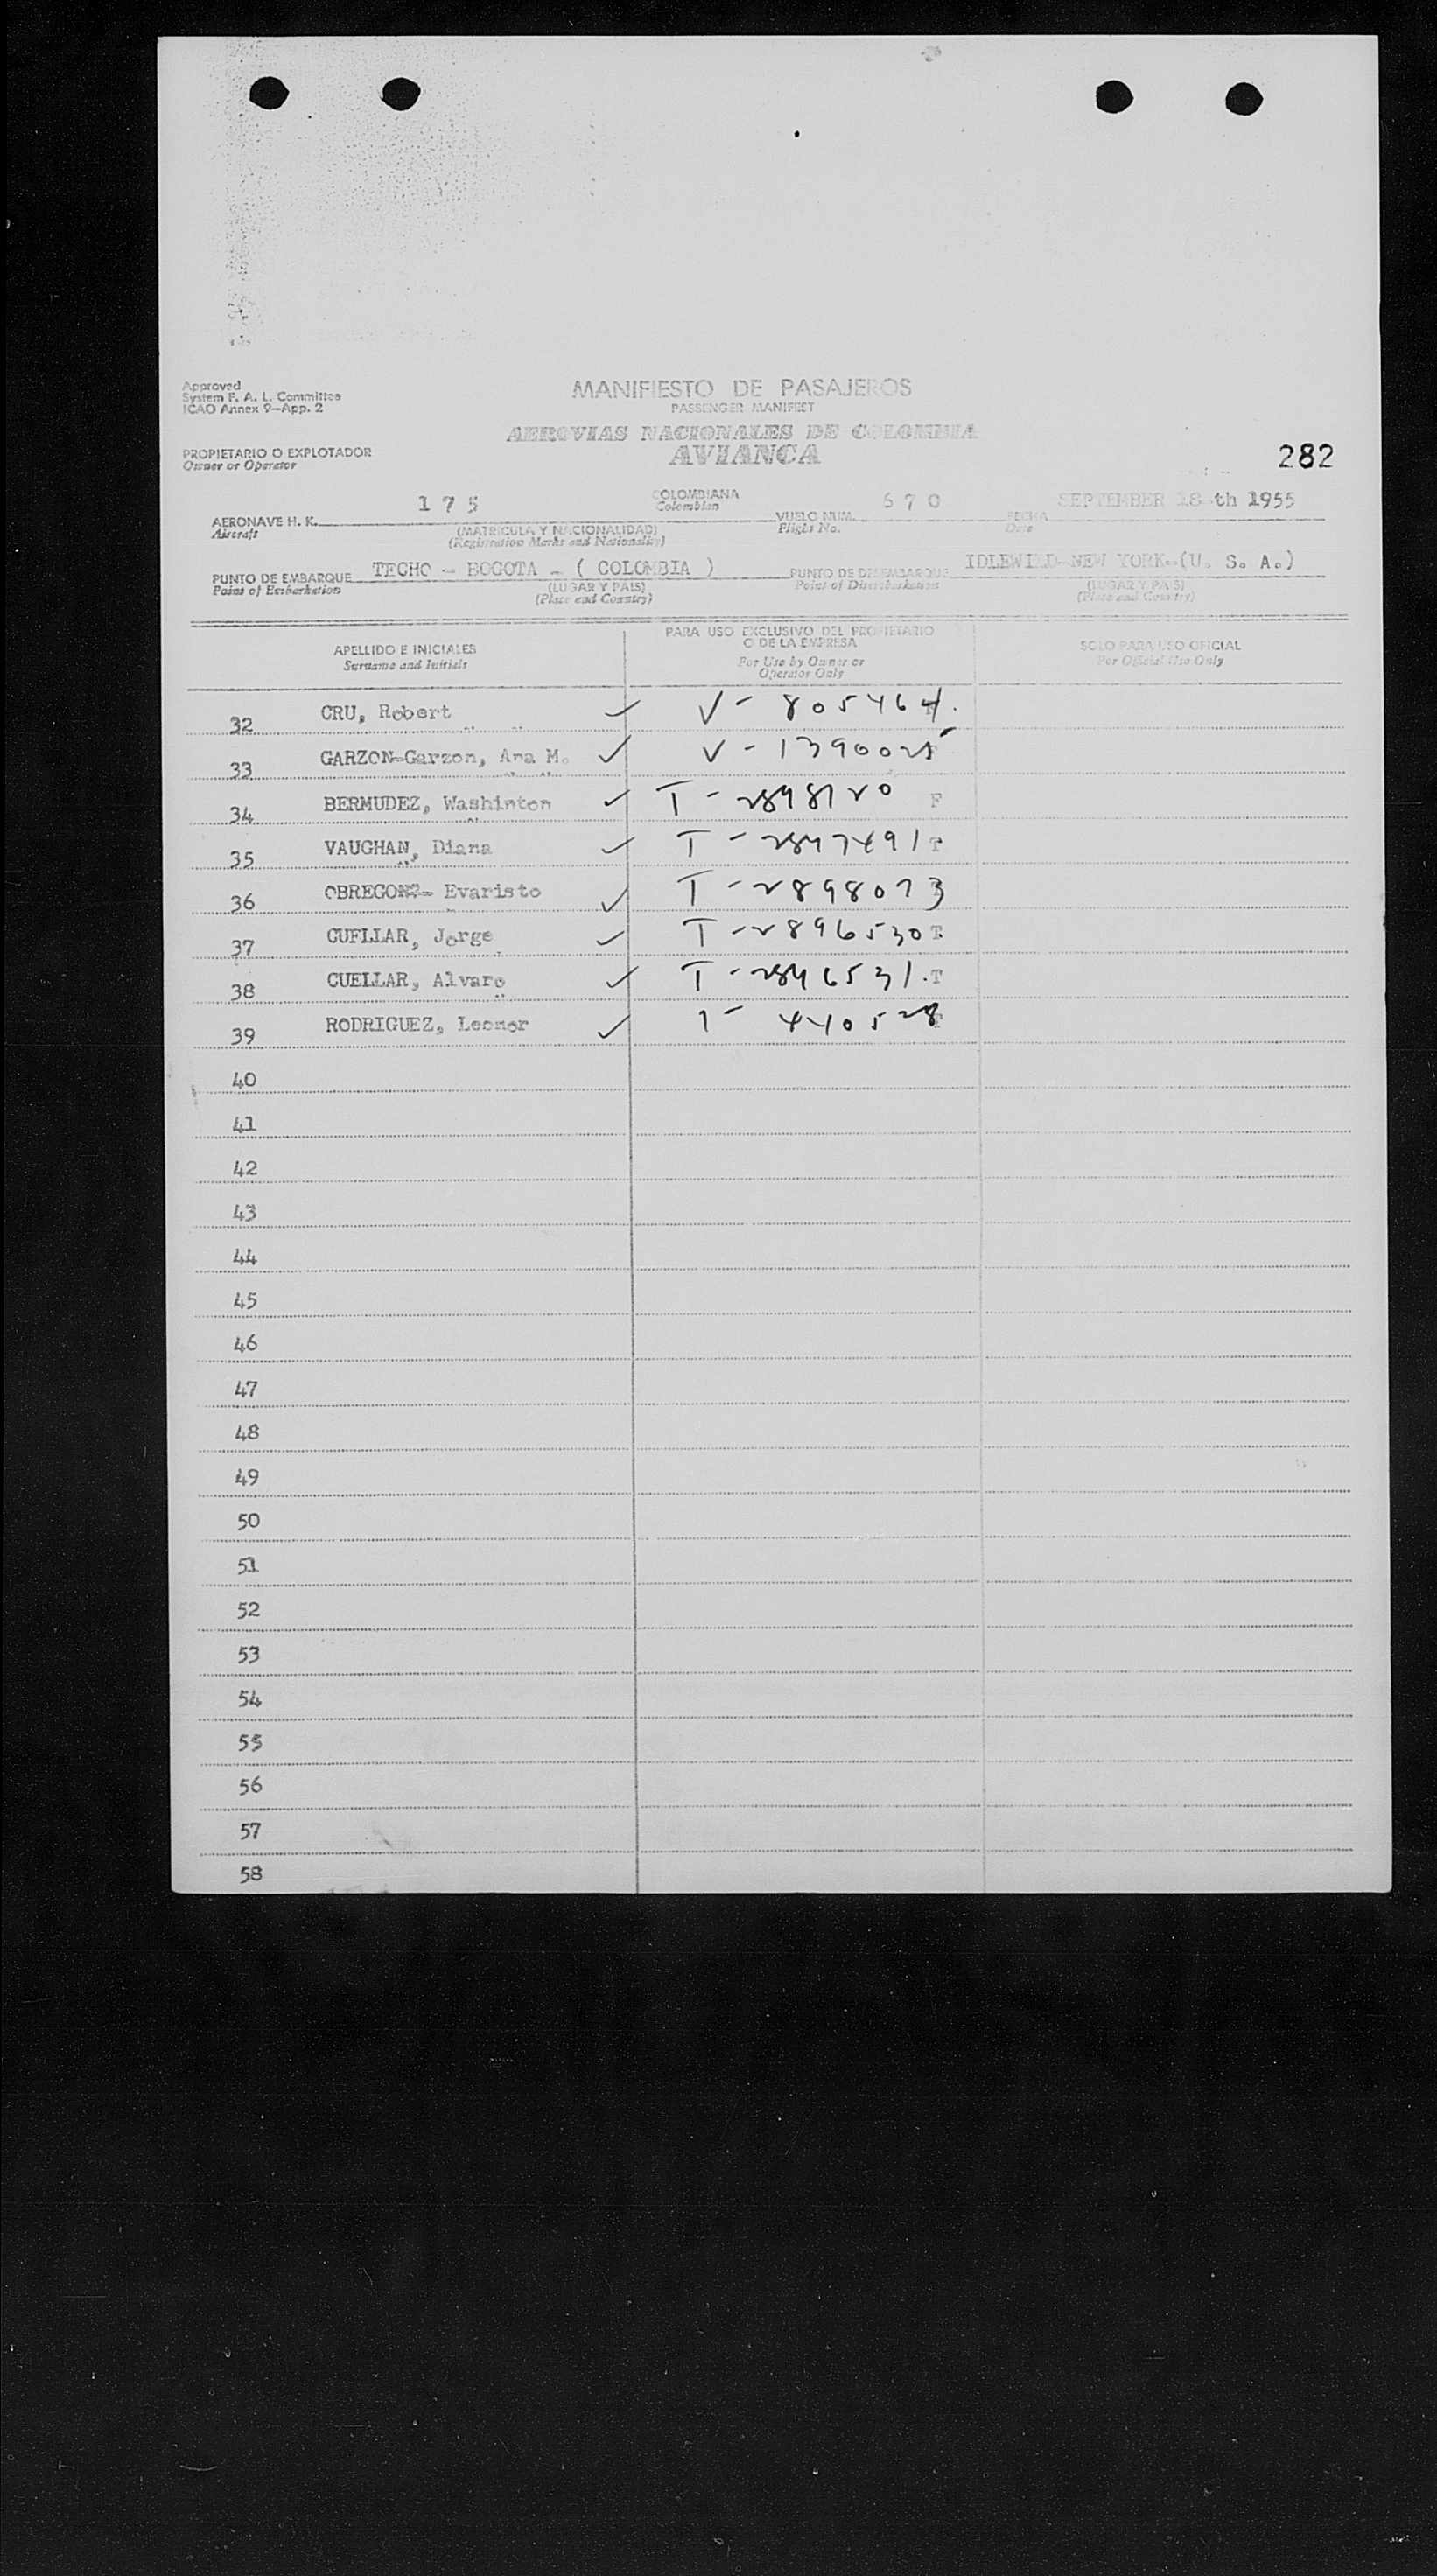 Approved
System F. A. L. Committee
ICAO Annex 9—App. 2
MANIFIESTO DE PASAJEROS
PASSENGER MANIFEST
AEROVIAS NACIONALES DE COLOMBIA
AVIANCA
PROPIETARIO O EXPLOTADOR
Owner or Operator
282
AERONAVE H. K. 175 COLOMBIANA VUELO NUM. 670 FECHA SEPTEMBER 18 th 1955
Aircraft (MATRICULA Y NACIONALIDAD) Colombian Flight No. Date
(Registration Marks and Nationality)
PUNTO DE EMBARQUE TECHO - BOGOTA - ( COLOMBIA ) PUNTO DE DESEMBARQUE IDLEWILD-NEW YORK-(U. S. A.)
Point of Embarkation (LUGAR Y PAIS) Point of Disembarkation (LUGAR Y PAIS)
(Place and Country) (Place and Country)
APELLIDO E INICIALES PARA USO EXCLUSIVO DEL PROPIETARIO SOLO PARA USO OFICIAL
Surname and Initials O DE LA EMPRESA For Official Use Only
For Use by Owner or
Operator Only
32 CRU, Robert ✓ V - 805464.
33 GARZON-Garzon, Ana M. ✓ V - 1390025
34 BERMUDEZ, Washinton ✓ T - 2898120 F
35 VAUGHAN, Diana ✓ T - 2897491 T
36 OBREGON - Evaristo ✓ T - 2898073
37 CUELLAR, Jorge ✓ T - 2896530 T
38 CUELLAR, Alvaro ✓ T - 2896531. T
39 RODRIGUEZ, Leonor ✓ 440528
40
41
42
43
44
45
46
47
48
49
50
51
52
53
54
55
56
57
58